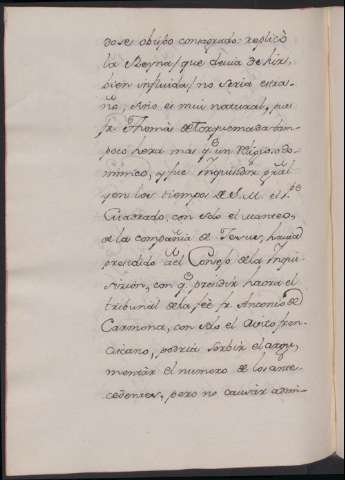 dose obispo consagrado: replicò
la Reyna/ que devia de hir
bien influida/ no seria estra-
ño, sino es mui natural, pues
fr Thomas de Torquemada tam-
poco hera mas q.e un Religioso do-
minico, y fue inquisidor gral
y en los tiempos de S. M. el
Criadrado, con solo el manteo,
de la compañia de Jesus, havia
presidido a el Consejo de la inqui-
sizion, con q.e presidir haora el
tribunal de la feè fr Antonio de
Carmona, con solo el avito fran-
ciscano, podria servir el argu-
mentàr el numero de los ante-
cedentes, pero no causar admi-